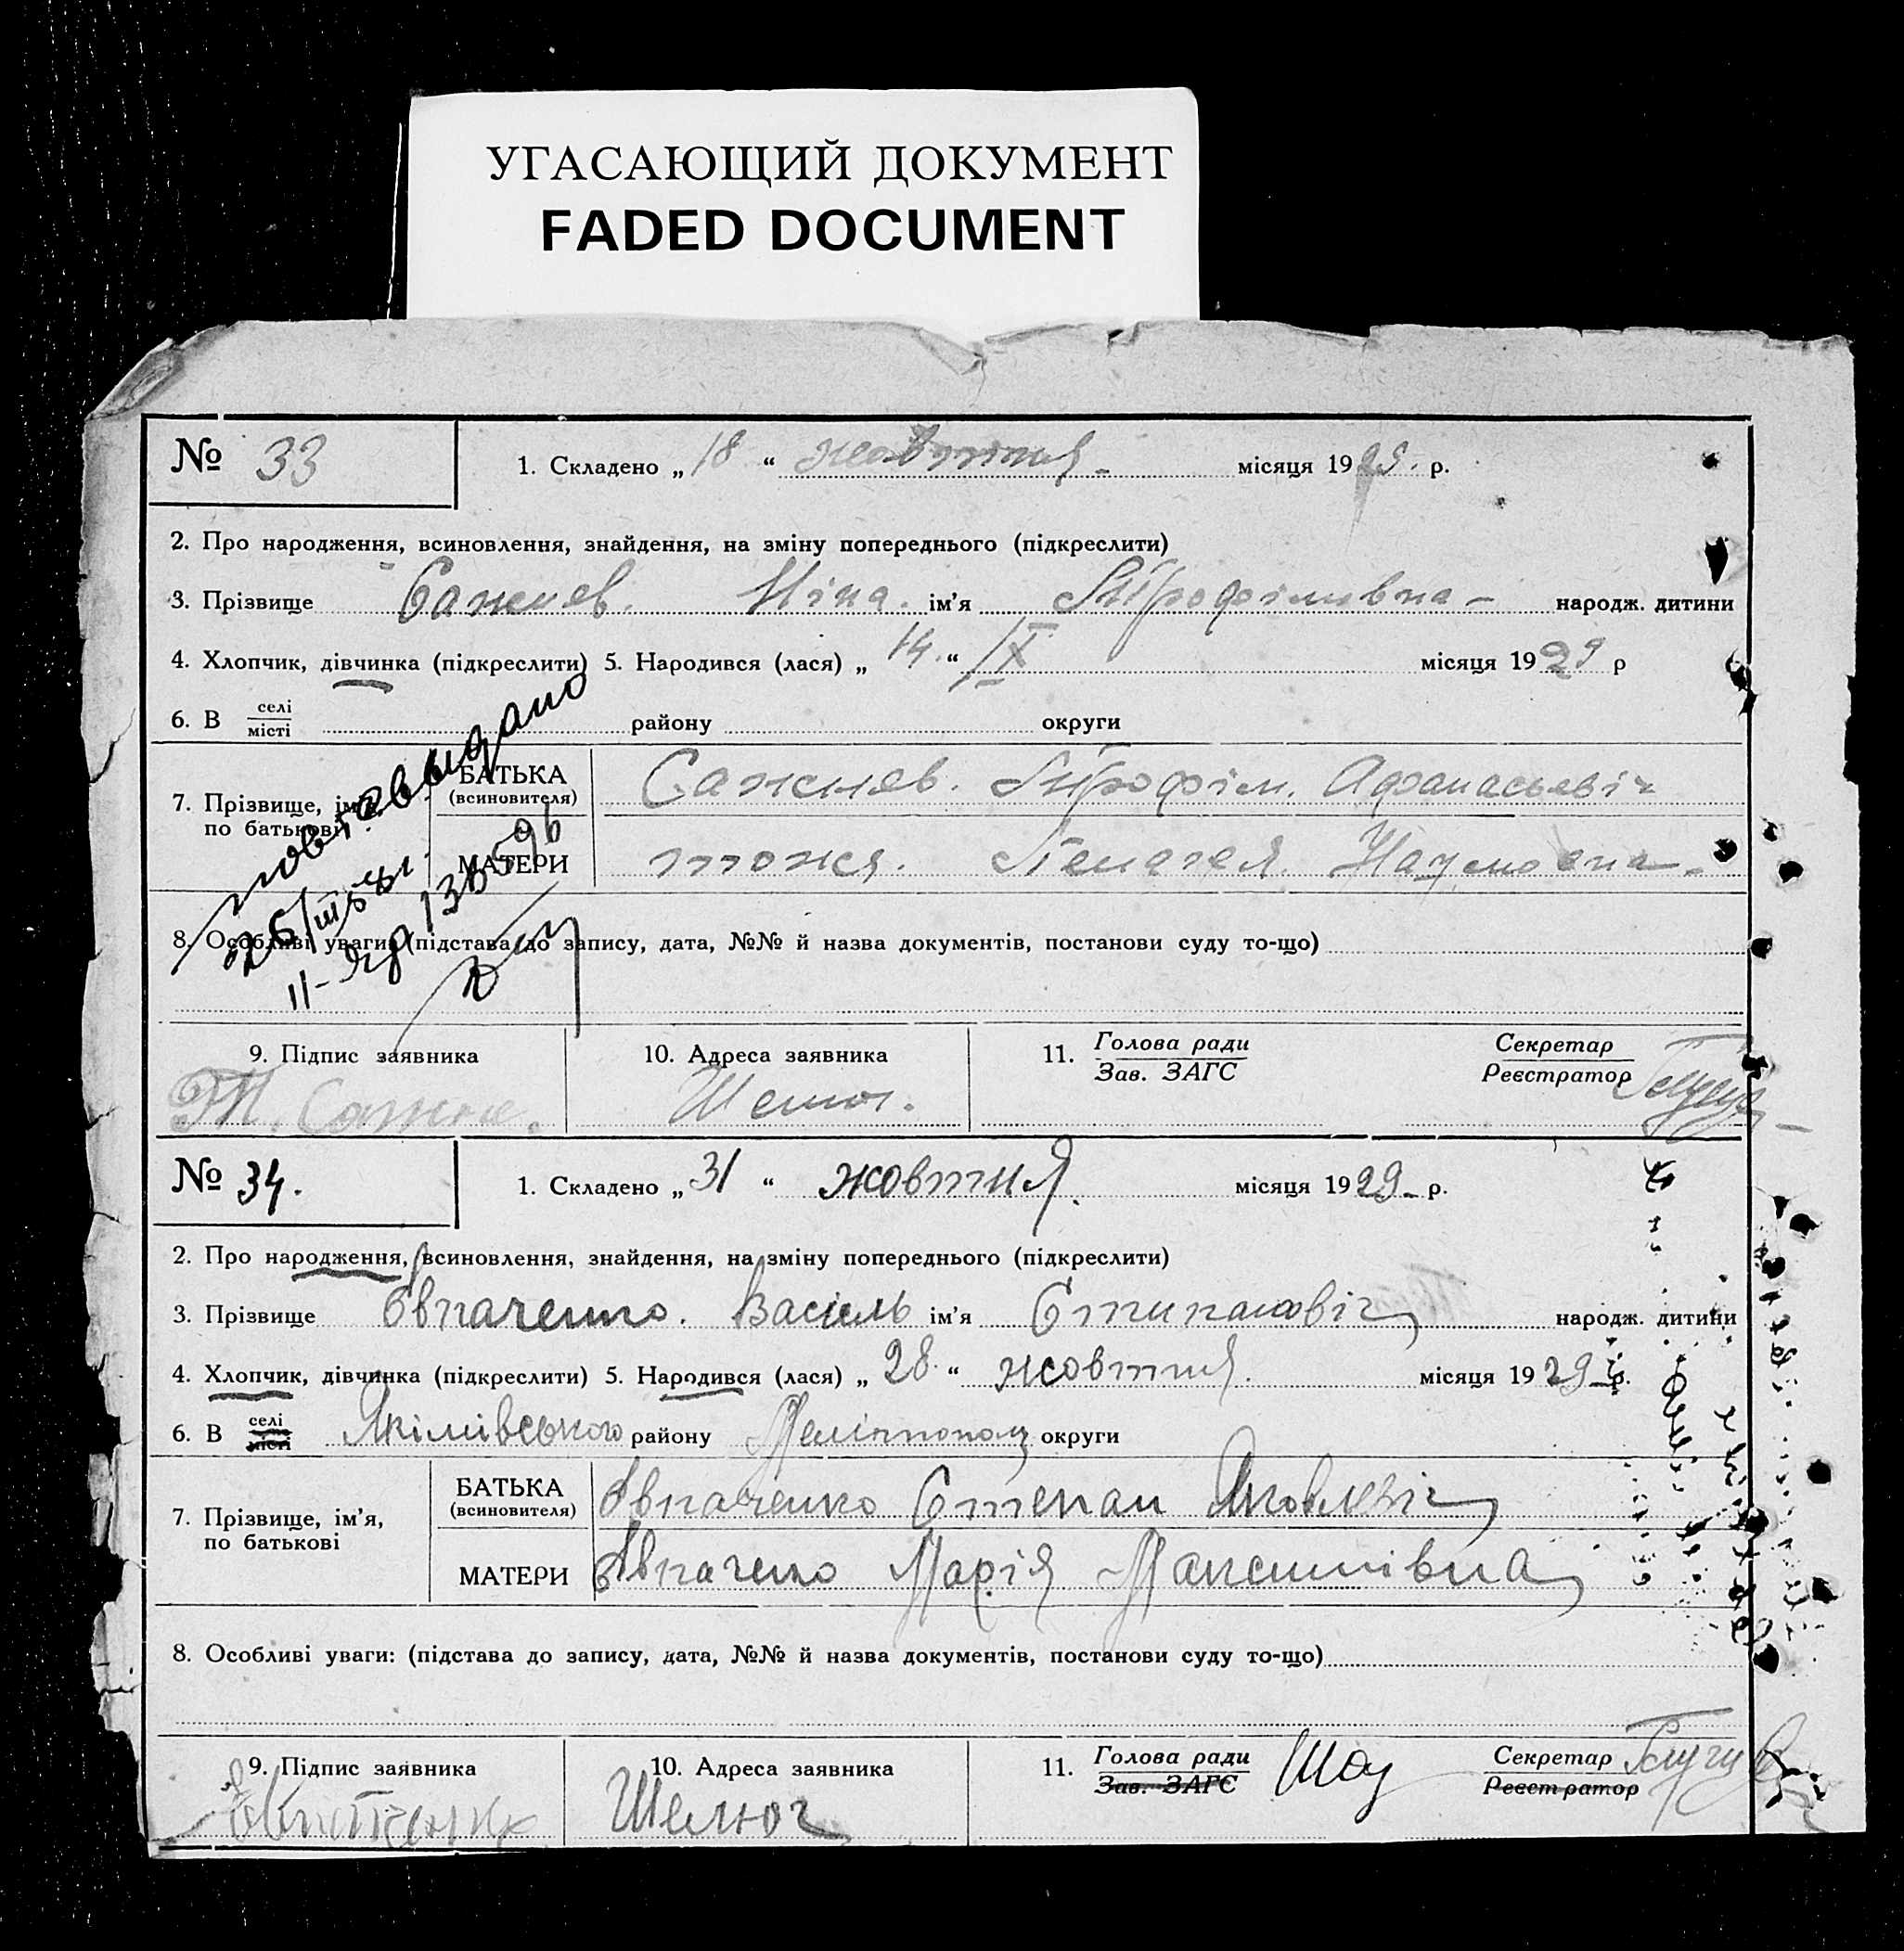 УГАСАЮЩИЙ ДОКУМЕНТ
FADED DOCUMENT
№ 33
1. Складено „ 18 “ жовтня - місяця 1929. р.
2. Про народження, всиновлення, знайдення, на зміну попереднього (підкреслити)
3. Прізвище Сажнєв. Ніна. ім'я Трофімовна - народж. дитини
4. Хлопчик, дівчинка (підкреслити) 5. Народився (лася) „ 14. “ IX місяця 1929 р
6. В селі місті району округи
7. Прізвище, ім'я, по батькові
БАТЬКА (всиновителя) Сажнєв. Трофім. Афанасьевіч
МАТЕРИ тожя. Пелагея. Наумовна.
8. Особливі уваги: (підстава до запису, дата, №№ й назва документів, постанови суду то-що)
9. Підпис заявника
10. Адреса заявника
11. Голова ради Зав. ЗАГС
Секретар Реєстратор
№ 34.
1. Складено „ 31 “ жовтня. місяця 1929 - р.
2. Про народження, всиновлення, знайдення, на зміну попереднього (підкреслити)
3. Прізвище Овпаченко. Васіль ім'я Стипановіч народж. дитини
4. Хлопчик, дівчинка (підкреслити) 5. Народився (лася) „ 28. “ жовтня. місяця 1929 - р.
6. В селі місті Якімівського району Мелітопол округи
7. Прізвище, ім'я, по батькові
БАТЬКА (всиновителя) Овпаченко Степан Яковлевіч
МАТЕРИ Овпаченко Марія Максимівна
8. Особливі уваги: (підстава до запису, дата, №№ й назва документів, постанови суду то-що)
9. Підпис заявника
10. Адреса заявника
Шелюг
11. Голова ради Зав. ЗАГС
Секретар Реєстратор